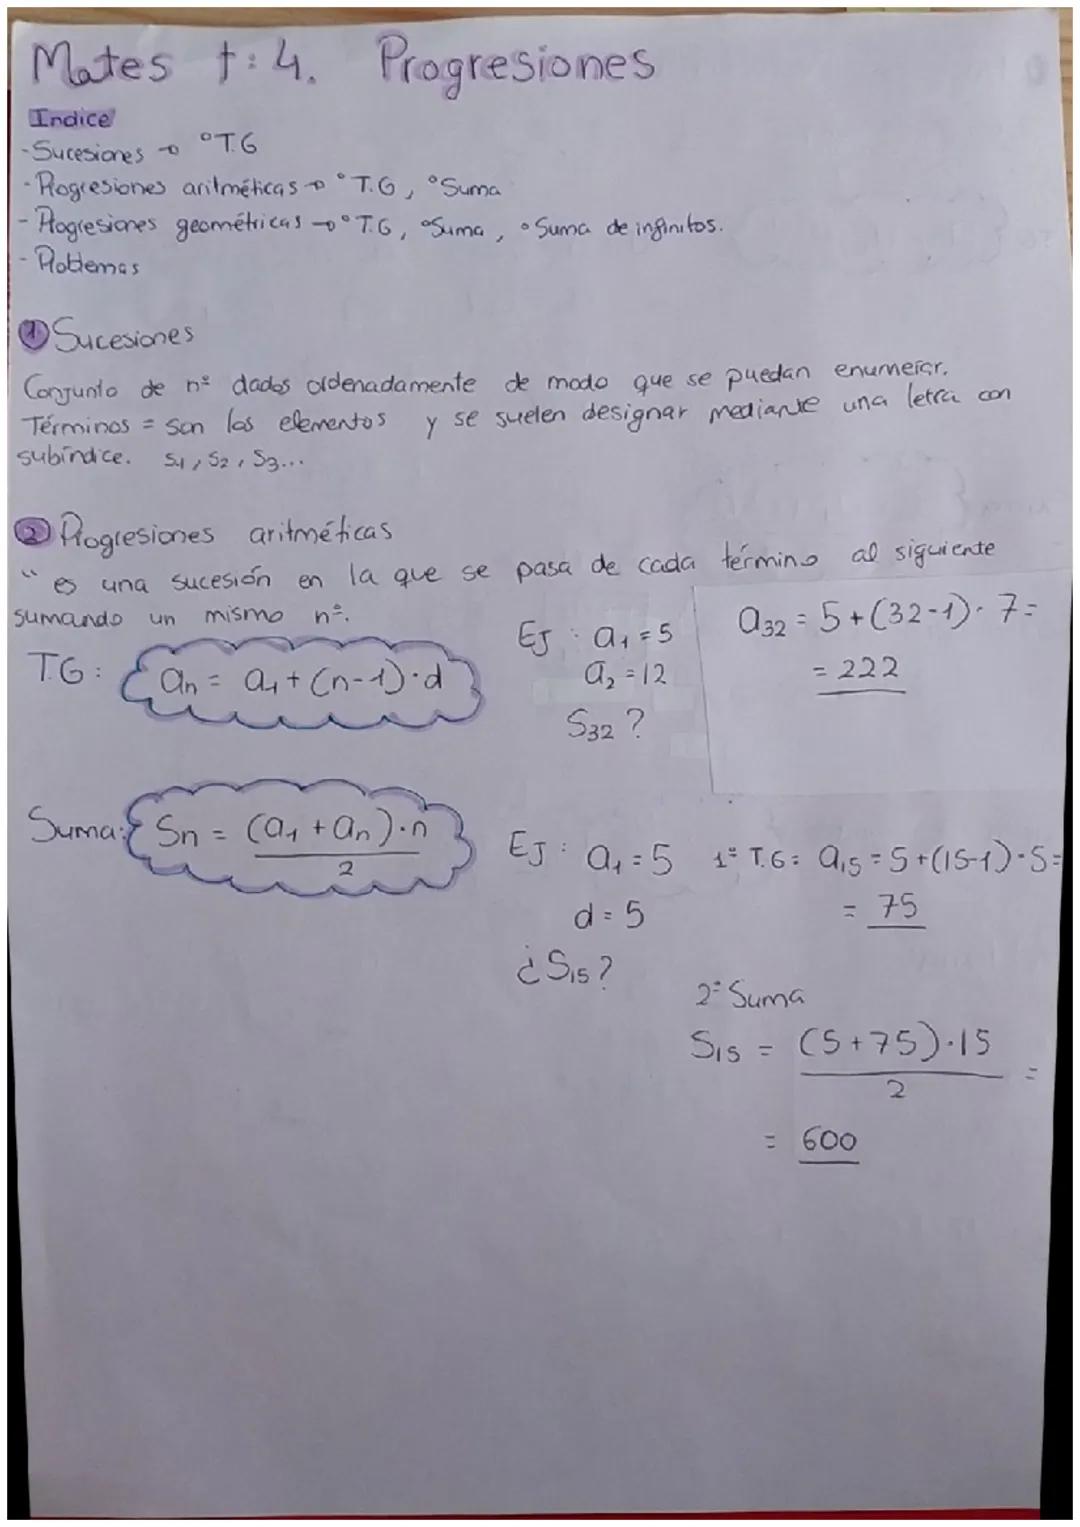 Mates t:4. Progresiones
Indice
-Sucesiones → °T.G
-Progresiones aritméticas → °T.G, °Suma
-Progresiones geométricas → °T.G, °Suma, °Suma de infinitos.
-Problemas
1. Sucesiones
Conjunto de nº dados ordenadamente de modo que se puedan enumerar.
Términos = son los elementos y se suelen designar mediante una letra con
subíndice. S1, S2, S3...
2 Progresiones aritméticas
" es una sucesión en la que se pasa de cada término al siguiente
sumando un mismo nº.
T.G: an = a1 + (n-1)·d
EJ: a1 = 5
a2 = 12
S32?
a32 = 5+(32-1)·7=
= 222
Suma: Sn = (a1 + an)·n
2
EJ: a1 = 5
d = 5
¿S15?
1º T.G: a15 = 5+(15-1)·5=
= 75
2º Suma
S15 = (5+75)·15 =
2
= 600